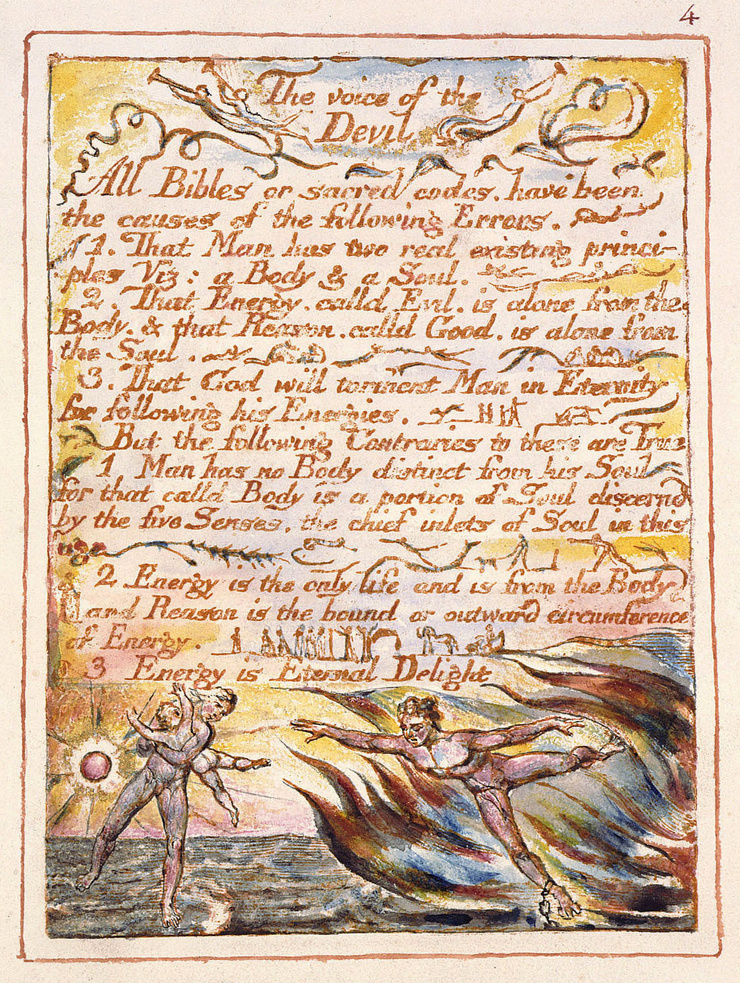 4
The voice of the
Devil
All Bibles or sacred codes. have been
the causes of the following Errors.
1. That Man has two real existing princi-
ples Viz: a Body & a Soul.
2. That Energy. calld Evil. is alone from the
Body. & that Reason. calld Good. is alone from
the Soul.
3. That God will torment Man in Eternity
for following his Energies.
But the following Contraries to these are True
1 Man has no Body distinct from his Soul
for that calld Body is a portion of Soul discernd
by the five Senses. the chief inlets of Soul in this
age
2 Energy is the only life and is from the Body
and Reason is the bound or outward circumference
of Energy.
3 Energy is Eternal Delight